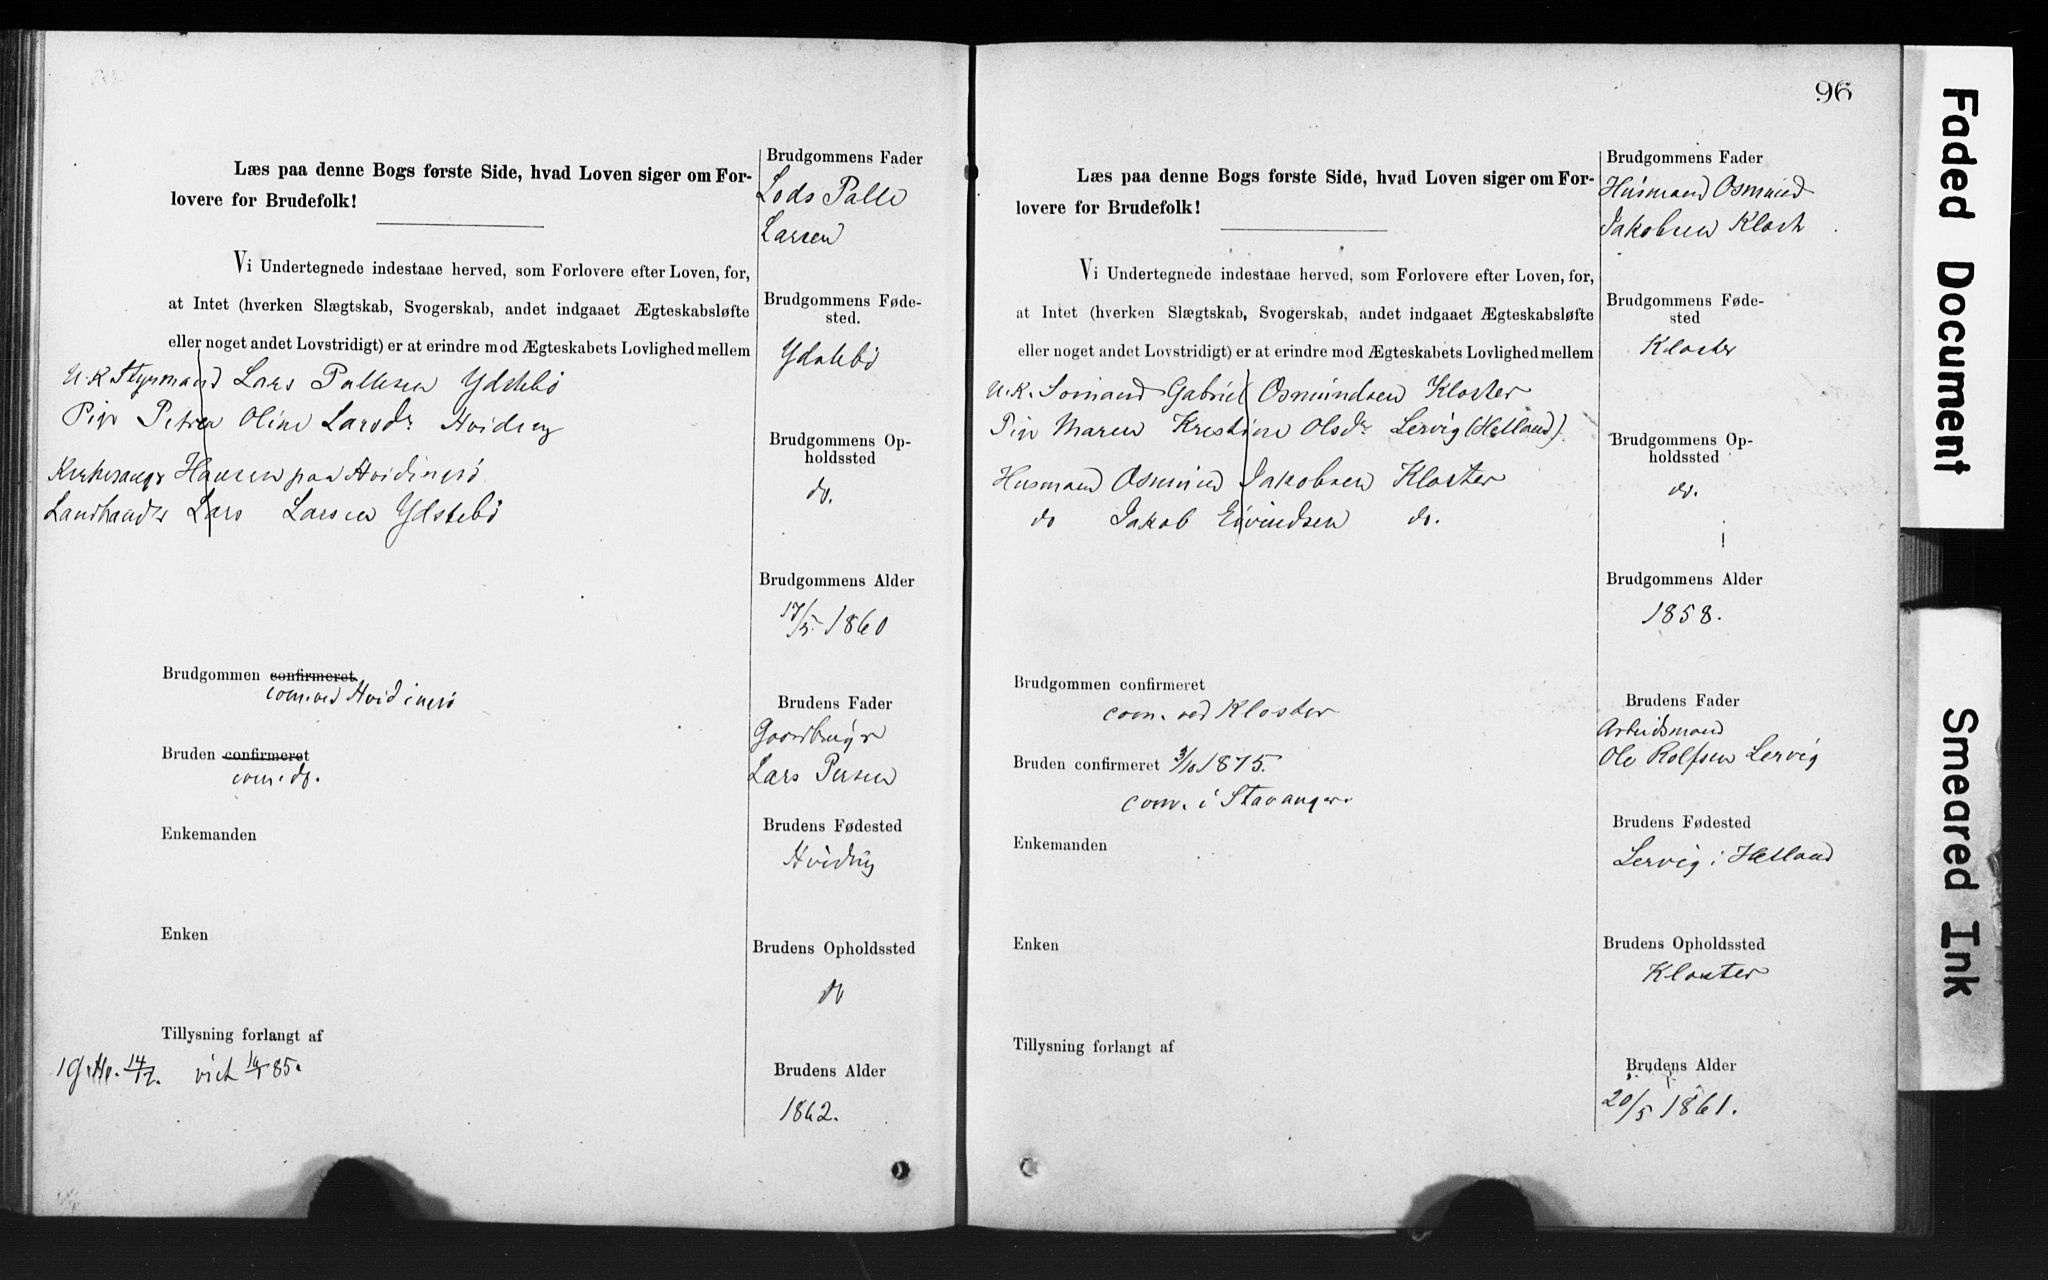 Læs paa denne Bogs første Side, hvad Loven siger om For-
lovere for Brudefolk!
Vi Undertegnede indestaae herved, som Forlovere efter Loven, for,
at Intet (hverken Slægtskab, Svogerskab, andet indgaaet Ægteskabsløfte
eller noget andet Lovstridigt) er at erindre mod Ægteskabets Lovlighed mellem
U.K. Styrmand Lars Pallesen Ydstebø
Pige Petrea Oline Larsdr Hviding
Kirkesanger Hansen paa Hvidingsø
Landhandler Lars Larsen Ydstebø
Brudgommen confirmeret
com. ved Hvidingsø
Bruden confirmeret
com. do.
Enkemanden
Enken
Tillysning forlangt af
1 G. 14/12. viet 16/1 85.
Brudgommens Fader
Lods Palle
Larsen
Brudgommens Føde-
sted.
Ydstebø
Brudgommens Op-
holdssted
do.
Brudgommens Alder
17/5 1860
Brudens Fader
Gaardbruger
Lars Persen
Brudens Fødested
Hviding
Brudens Opholdssted
do
Brudens Alder
1862.
96
Læs paa denne Bogs første Side, hvad Loven siger om For-
lovere for Brudefolk!
Vi Undertegnede indestaae herved, som Forlovere efter Loven, for,
at Intet (hverken Slægtskab, Svogerskab, andet indgaaet Ægteskabsløfte
eller noget andet Lovstridigt) er at erindre mod Ægteskabets Lovlighed mellem
U.K. Sømand Gabriel Osmundsen Kloster
Pige Maren Kristine Olsdr Lervig (Hetland).
Husmand Osmund Jakobsen Kloster
do Jakob Eivindsen do.
Brudgommen confirmeret
com. ved Kloster
Bruden confirmeret 3/10 1875.
com. i Stavanger.
Enkemanden
Enken
Tillysning forlangt af
Brudgommens Fader
Husmand Osmund
Jakobsen Klostr
Brudgommens Føde-
sted
Kloster
Brudgommens Op-
holdssted
do.
Brudgommens Alder
1858.
Brudens Fader
Arbeidsmand
Ole Rolfsen Lervig
Brudens Fødested
Lervig i Hetland
Brudens Opholdssted
Kloster
Brudens Alder
20/5 1861.
Faded Document
Smeared Ink